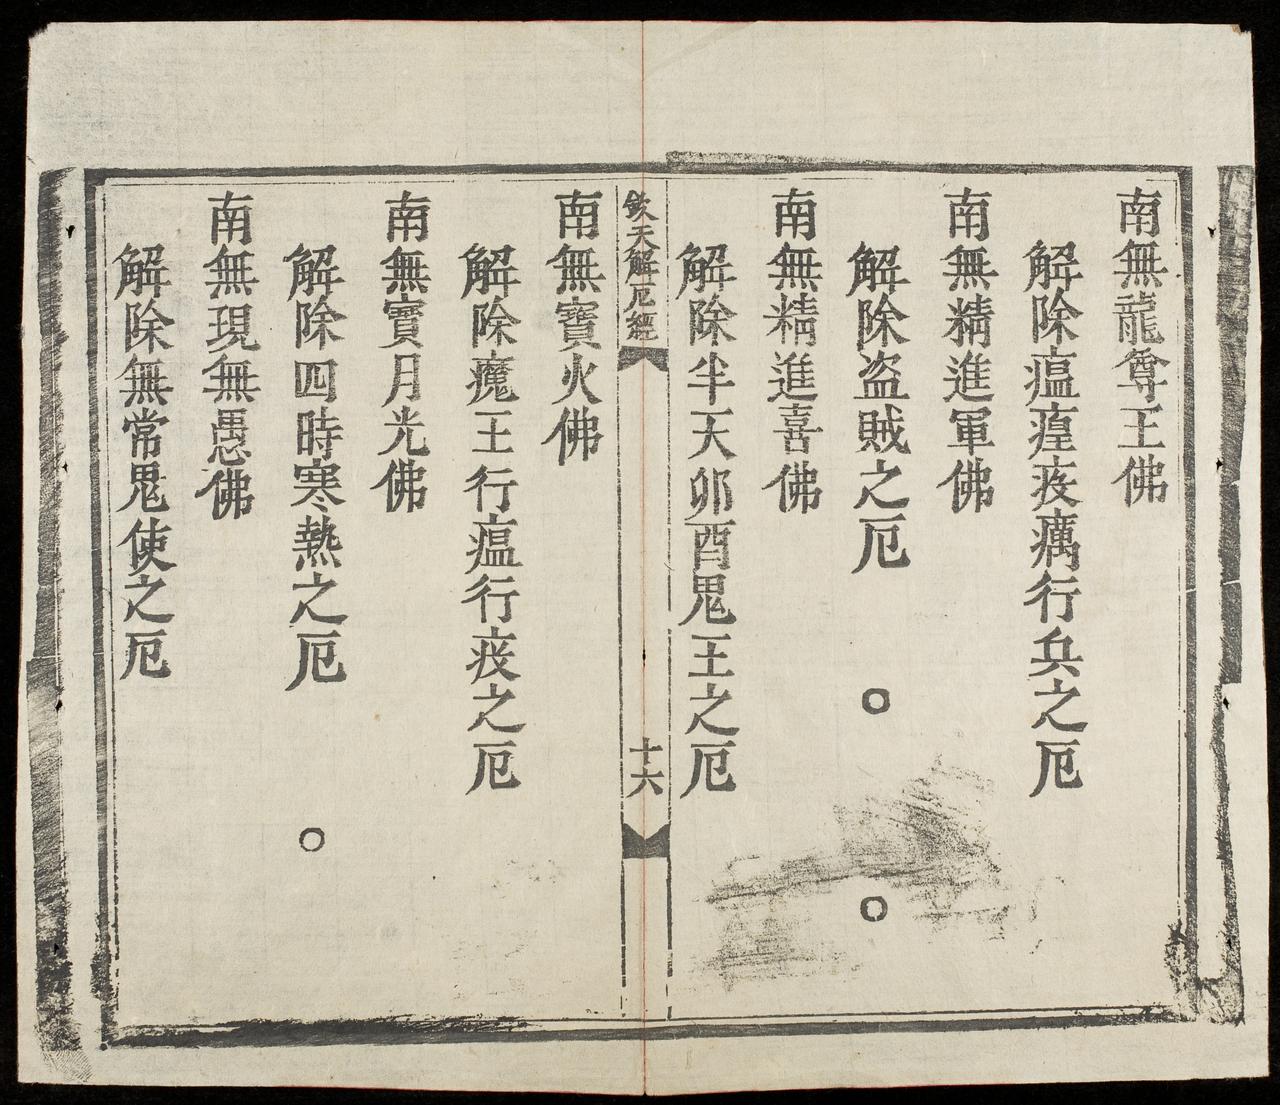 南無龍尊王佛
解除瘟瘟疫癘行兵之厄
南無精進軍佛
解除盜賊之厄
南無精進喜佛
解除半天卯酉鬼王之厄
欽天解厄經
十六
南無寶火佛
解除魔王行瘟行疫之厄
南無寶月光佛
解除四時寒熱之厄
南無現無愚佛
解除無常鬼使之厄